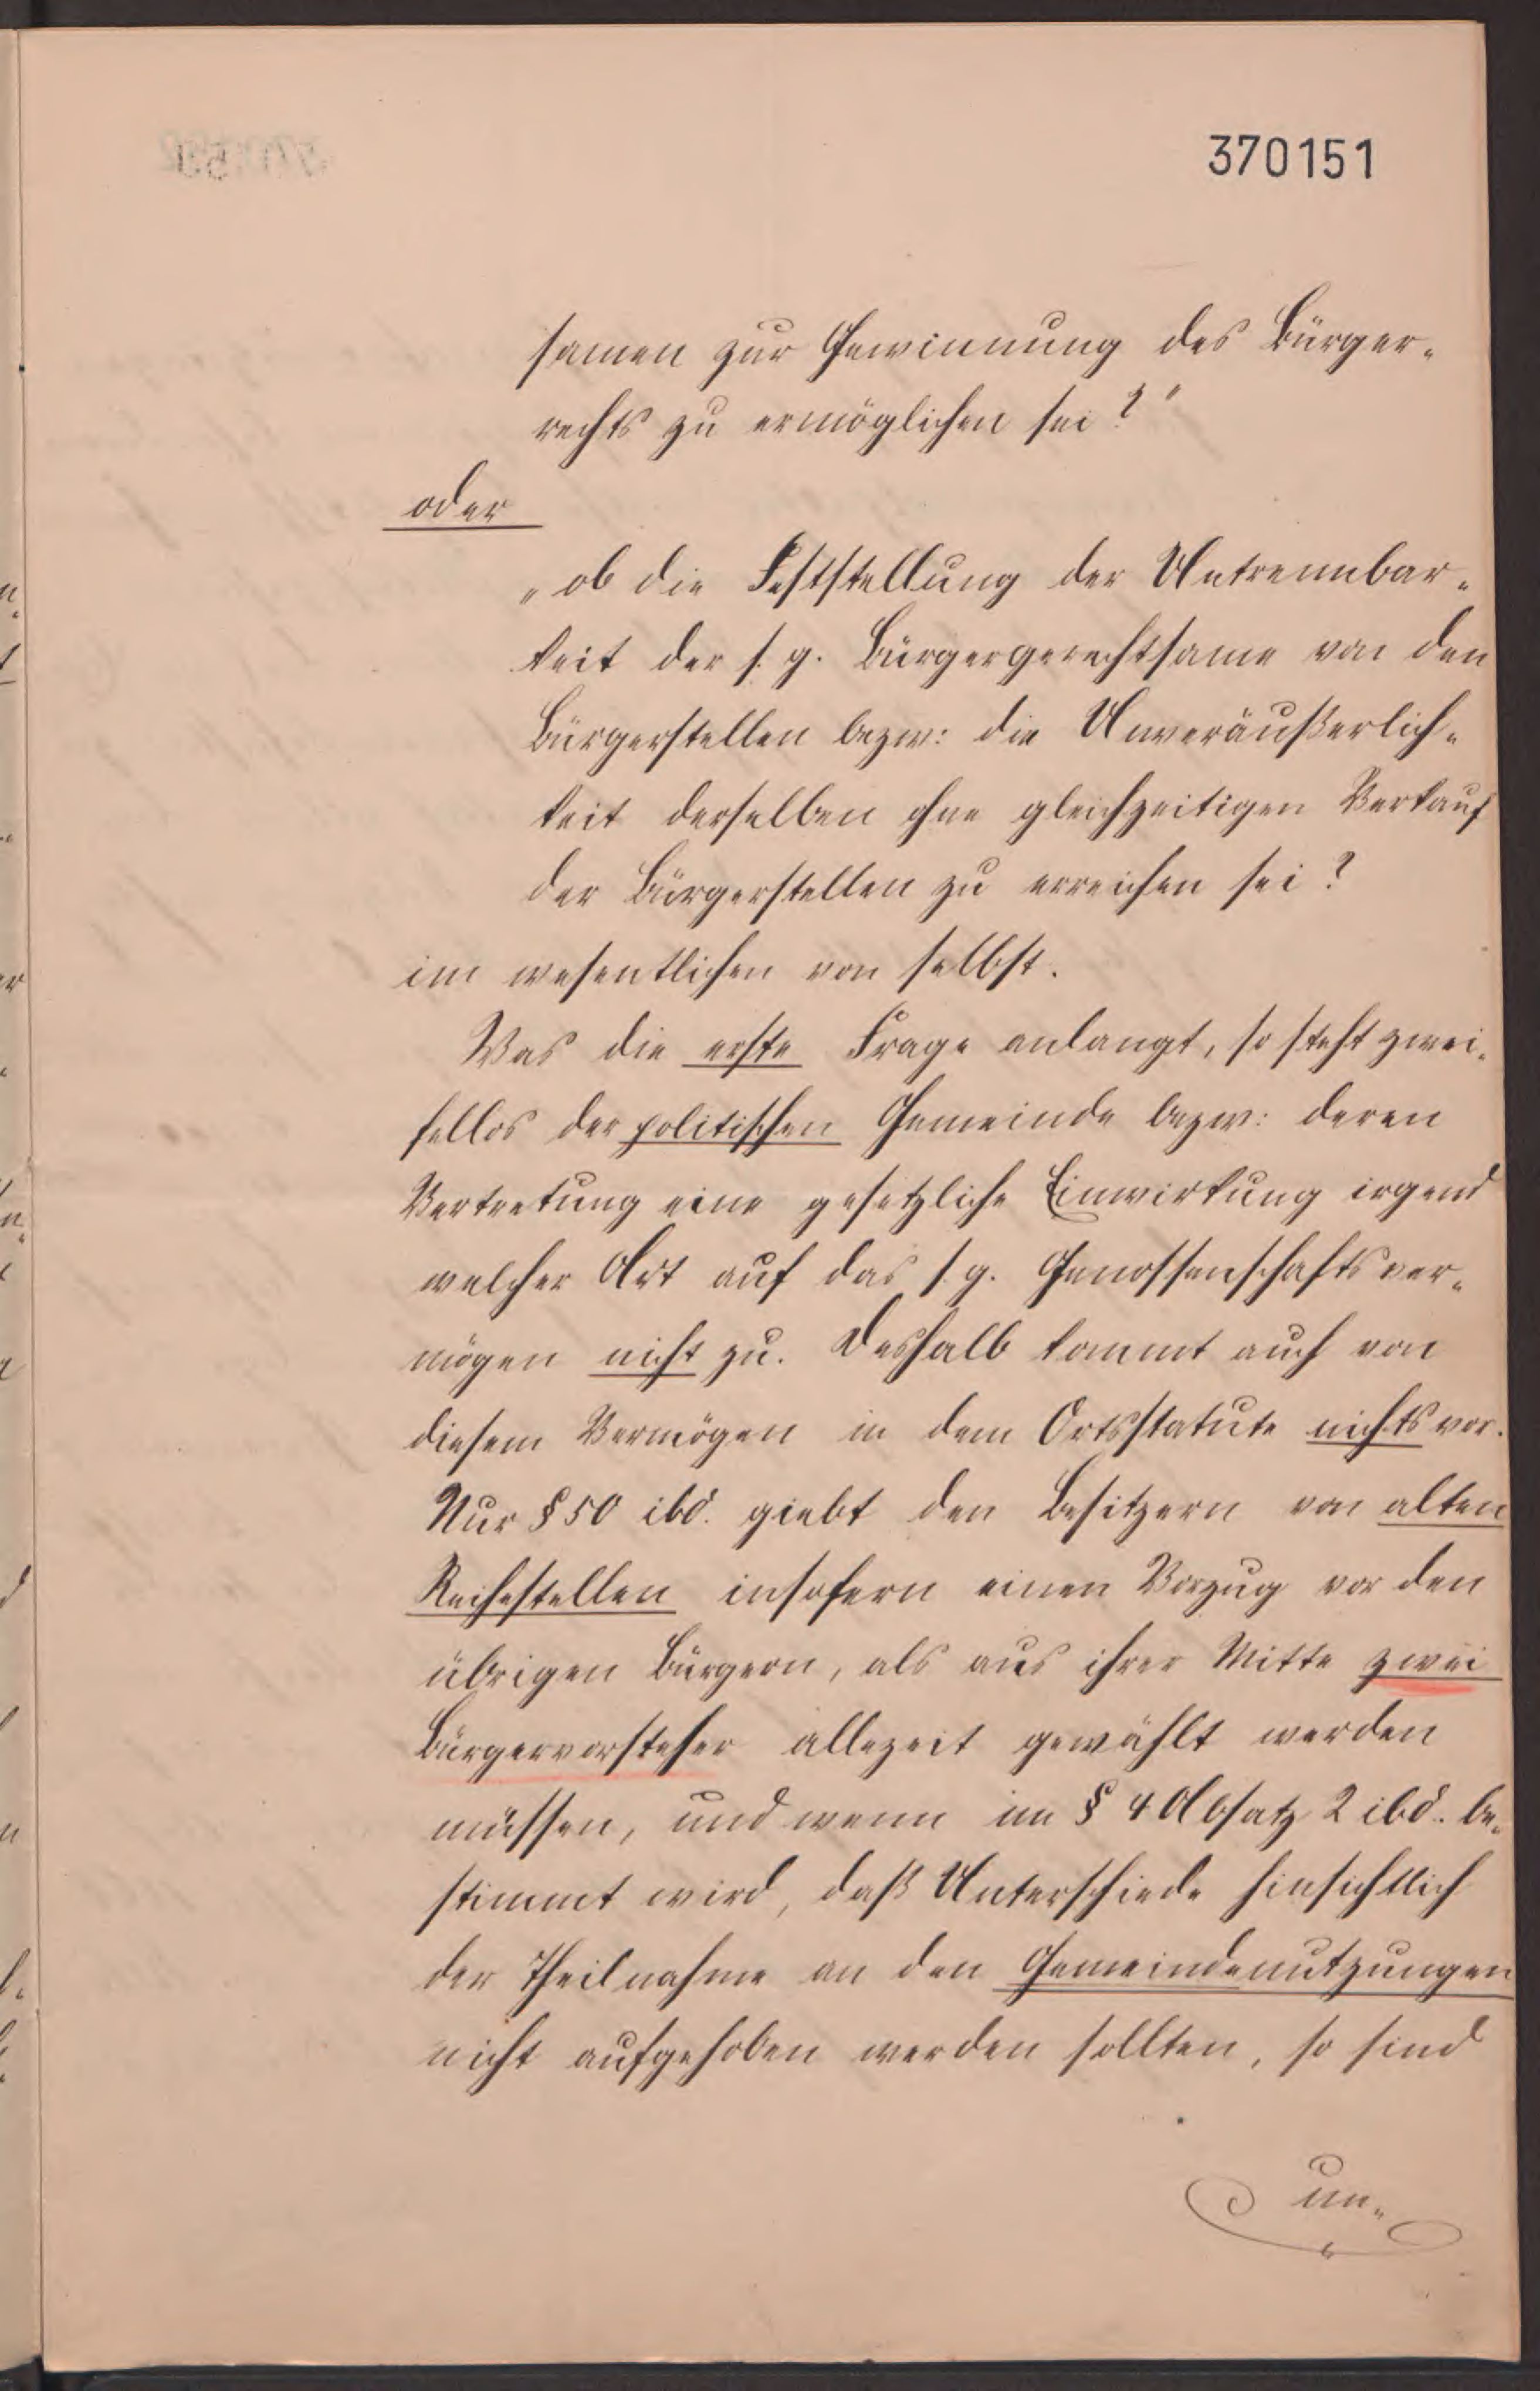 370151
samen zur Gewinnung des Bürger-
rechts zu ermöglichen sei?"
oder
"ob die Feststellung der Untrennbar-
keit der s. g. Bürgergerechtsame von den
Bürgerstellen bezw: die Unveräußerlich-
keit derselben ohne gleichzeitigen Verkauf
der Bürgerstellen zu erreichen sei?
im wesentlichen von selbst.
Was die erste Frage anlangt, so steht zwei-
fellos der politischen Gemeinde bezw: deren
Vertretung eine gesetzliche Einwirkung irgend
welcher Art auf das s. g. Genossenschaftsver-
mögen nicht zu. Deshalb kommt auch von
diesem Vermögen in dem Ortsstatute nichts vor.
Nur § 50 ibd. giebt den Besitzern von alten
Reihestellen insofern einen Vorzug vor den
übrigen Bürgern, als aus ihrer Mitte zwei
Bürgervorsteher allezeit gewählt werden
müssen, und wenn im § 4 Absatz 2 ibd. be-
stimmt wird, daß Unterschiede hinsichtlich
der Theilnahme an den Gemeindenutzungen
nicht aufgehoben werden sollten, so sind
un-